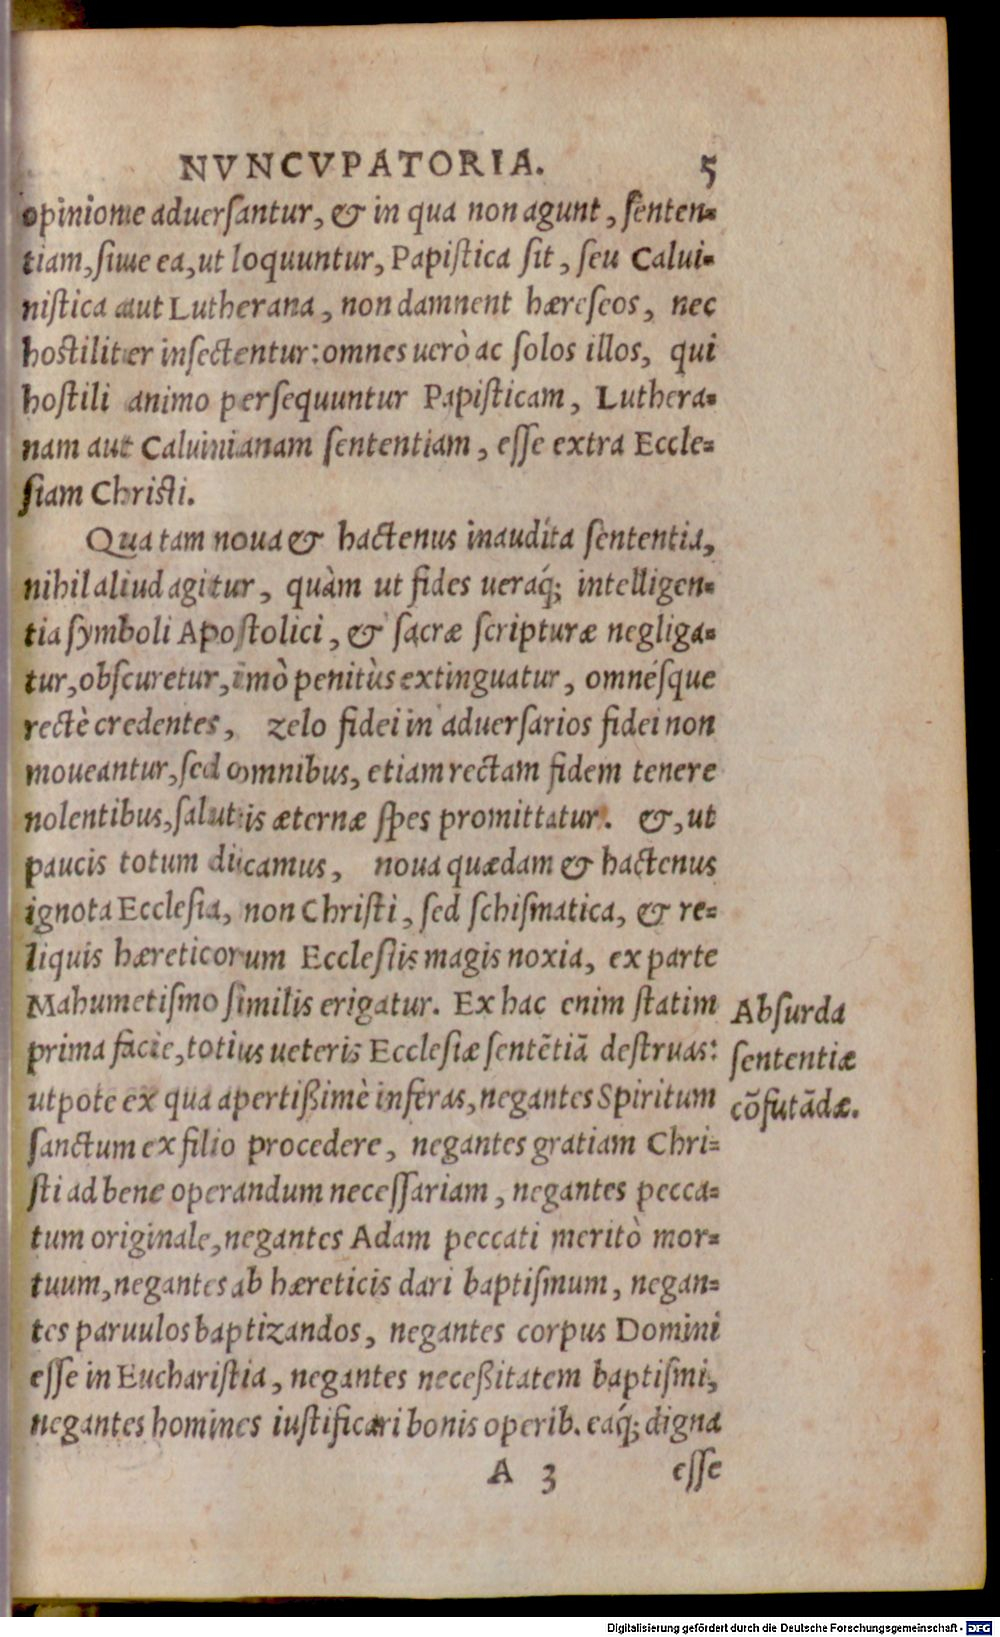 NVNCVPATORIA. 5
opinione aduersantur, & in qua non agunt, senten-
tiam, siue ea, ut loquuntur, Papistica sit, seu Calui-
nistica aut Lutherana, non damnent hæreseos, nec
hostiliter insectentur: omnes uerò ac solos illos, qui
hostili animo persequuntur Papisticam, Luthera-
nam aut Caluinianam sententiam, esse extra Eccle-
siam Christi.
Qua tam noua & hactenus inaudita sententia,
nihil aliud agitur, quàm ut fides ueraq́; intelligen-
tia symboli Apostolici, & sacræ scripturæ negliga-
tur, obscuretur, imò penitùs extinguatur, omnésque
rectè credentes, zelo fidei in aduersarios fidei non
moueantur, sed omnibus, etiam rectam fidem tenere
nolentibus, salutis æternæ spes promittatur. &, ut
paucis totum dicamus, noua quædam & hactenus
ignota Ecclesia, non Christi, sed schismatica, & re-
liquis hæreticorum Ecclesiis magis noxia, ex parte
Mahumetismo similis erigatur. Ex hac enim statim
prima facie, totius ueteris Ecclesiæ sentētiā destruas:
utpote ex qua apertißimè inferas, negantes Spiritum
sanctum ex filio procedere, negantes gratiam Chri-
sti ad bene operandum necessariam, negantes pecca-
tum originale, negantes Adam peccati meritò mor-
tuum, negantes ab hæreticis dari baptismum, negan-
tes paruulos baptizandos, negantes corpus Domini
esse in Eucharistia, negantes neceßitatem baptismi,
negantes homines iustificari bonis operib. eaq́; digna
A 3 esse
Absurda
sententiæ
cōfutādæ.
Digitalisierung gefördert durch die Deutsche Forschungsgemeinschaft - DFG